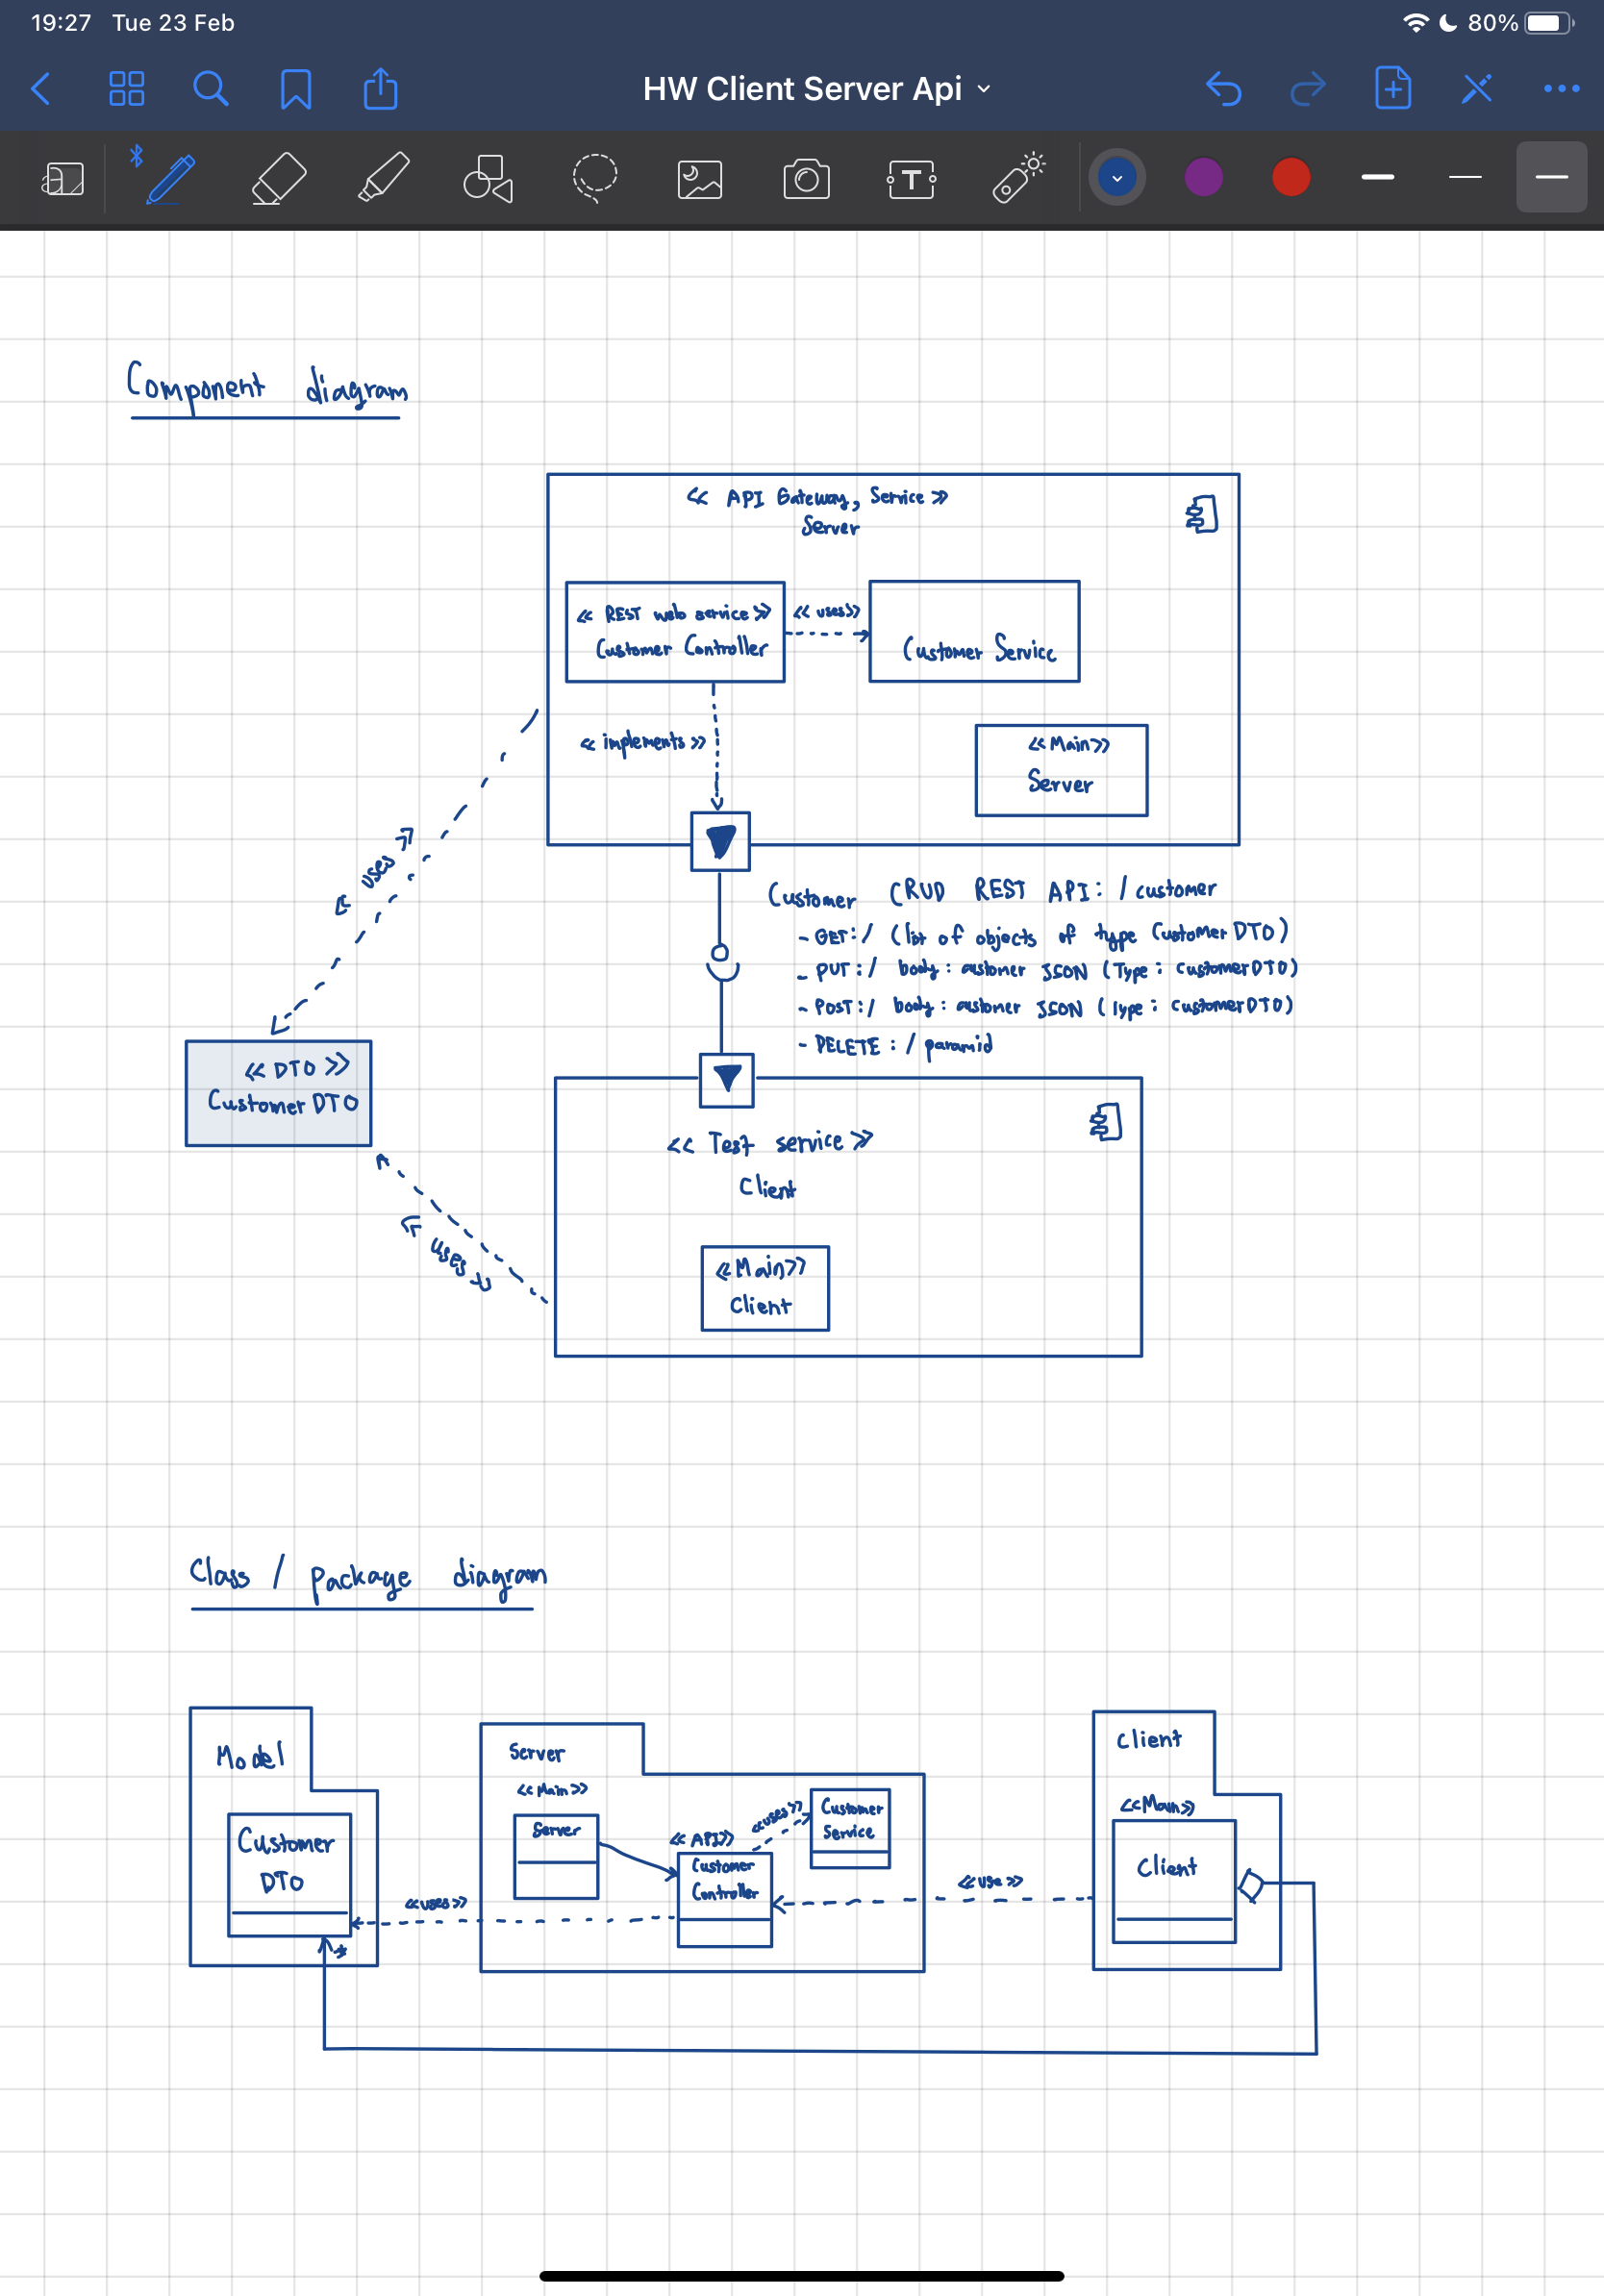 19:27 Tue 23 Feb
80%
HW Client Server Api
T
Component diagram
<< API Gateway, Service >>
Server
<< REST web service >>
Customer Controller
<< uses >>
Customer Service
<< implements >>
<< Main >>
Server
<< uses >>
Customer CRUD REST API: / customer
- GET: / (list of objects of type CustomerDTO)
- PUT: / body: customer JSON (Type: customerDTO)
- POST: / body: customer JSON (Type: customerDTO)
- DELETE: / paramid
<< DTO >>
Customer DTO
<< Test service >>
Client
<< uses >>
<< Main >>
Client
Class / package diagram
Model
Customer
DTO
*
<< uses >>
Server
<< Main >>
Server
<< API >>
Customer
Controller
<< uses >>
Customer
Service
<< use >>
Client
<< Main >>
Client